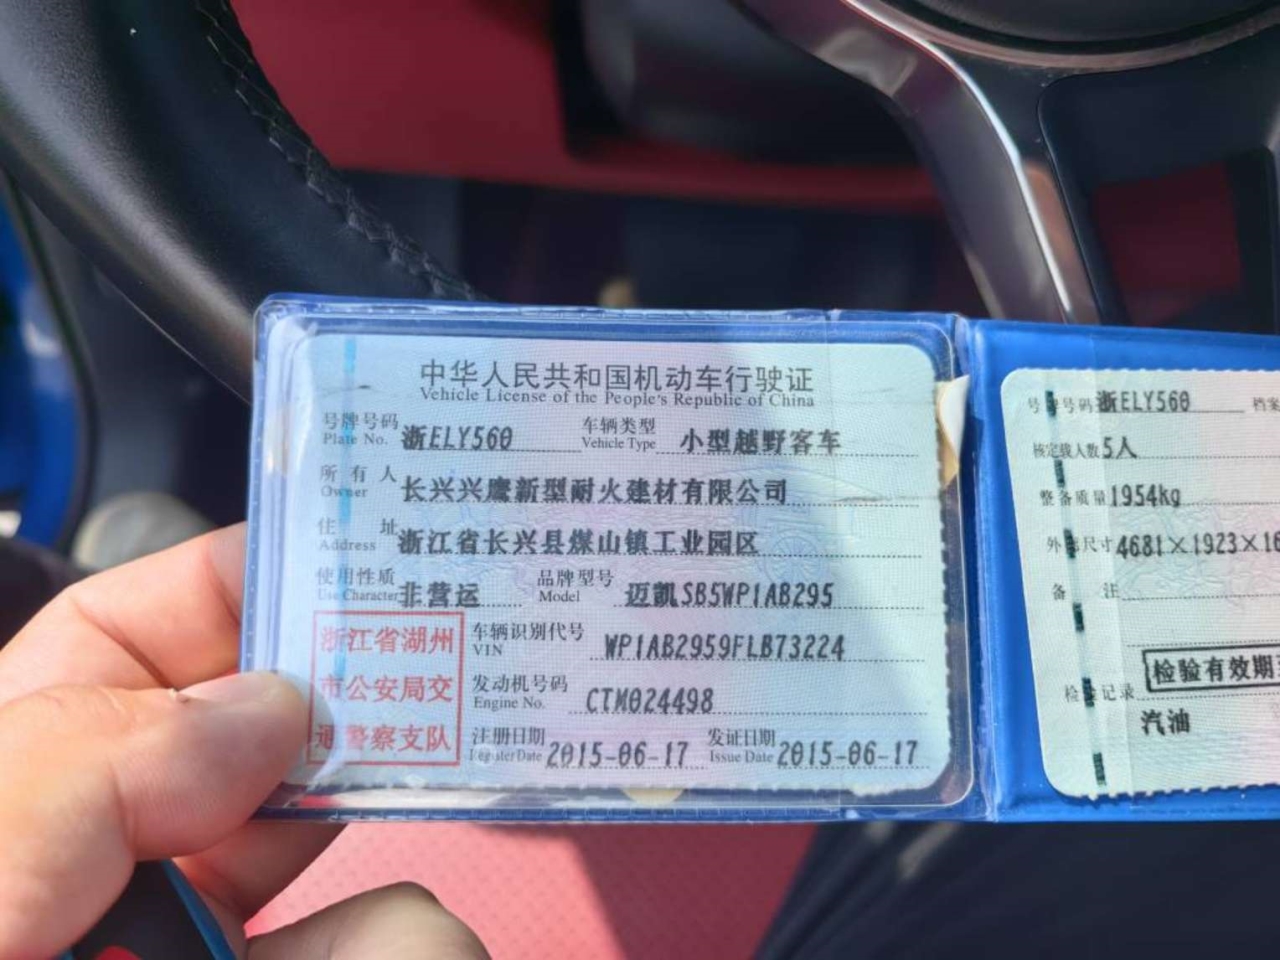 中华人民共和国机动车行驶证
Vehicle License of the People's Republic of China
号牌号码 Plate No. 浙ELY560 车辆类型 Vehicle Type 小型越野客车
所有人 Owner 长兴兴鹰新型耐火建材有限公司
住址 Address 浙江省长兴县煤山镇工业园区
使用性质 Use Character 非营运 品牌型号 Model 迈凯SB5WP1AB295
浙江省湖州
市公安局交
通警察支队
车辆识别代号 VIN WP1AB2959FLB73224
发动机号码 Engine No. CTM024498
注册日期 Register Date 2015-06-17 发证日期 Issue Date 2015-06-17
号牌号码 浙ELY560 档案
核定载人数 5人
整备质量 1954kg
外廓尺寸 4681×1923×16
备注
检验记录 检验有效期至
汽油